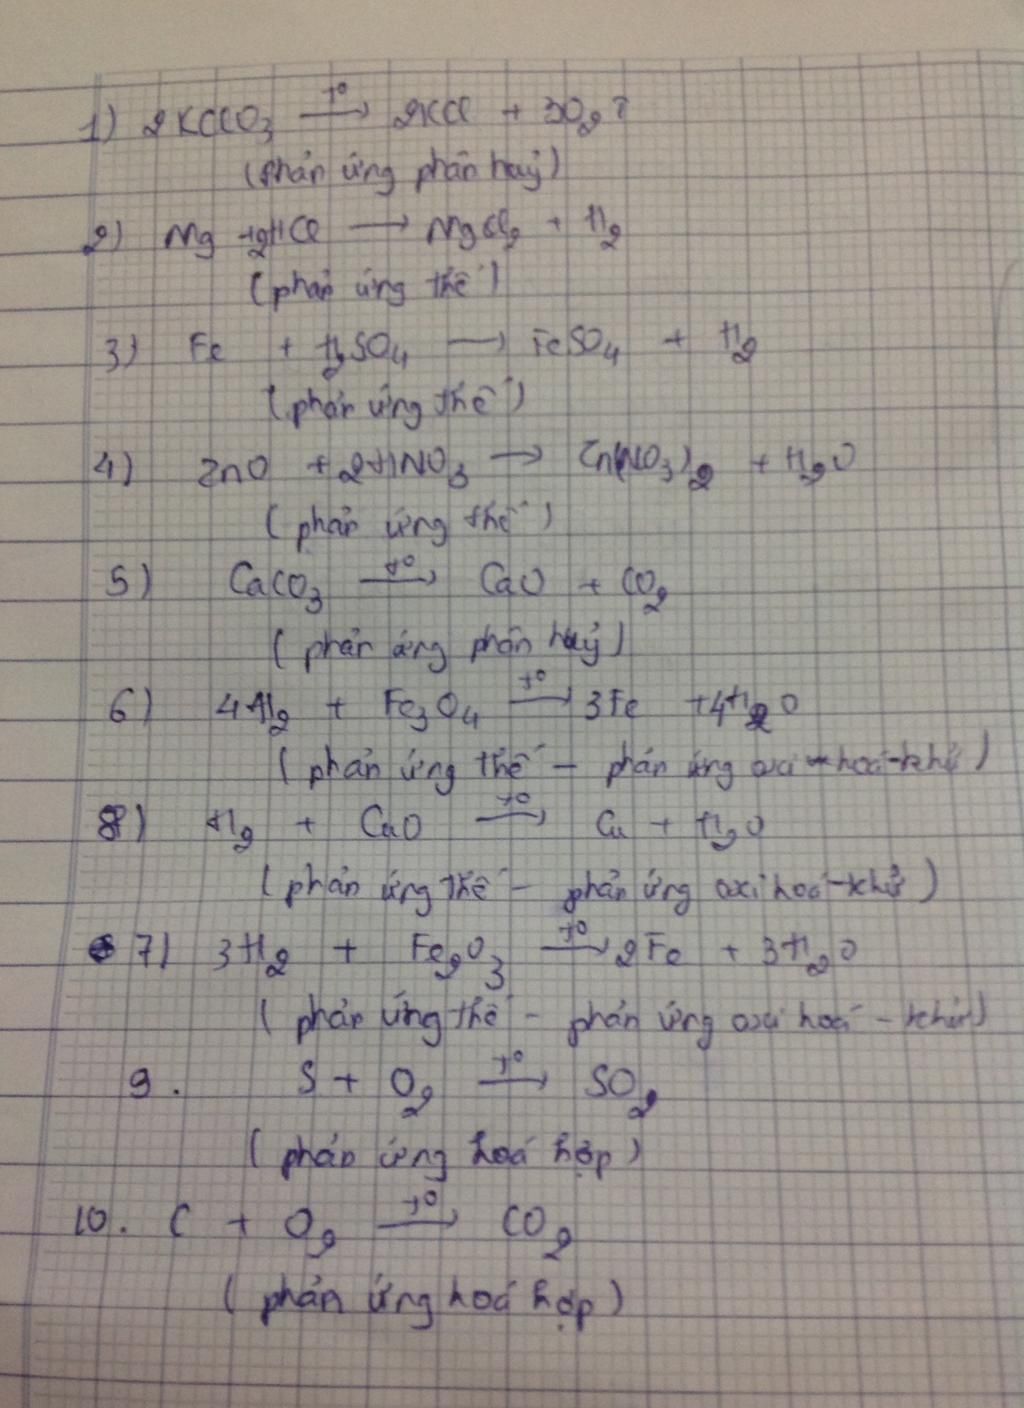 1) 2KClO₃ —t°→ 2KCl + 3O₂↑
(phản ứng phân huỷ)
2) Mg + 2HCl → MgCl₂ + H₂
(phản ứng thế)
3) Fe + H₂SO₄ → FeSO₄ + H₂
(phản ứng thế)
4) ZnO + 2HNO₃ → Zn(NO₃)₂ + H₂O
(phản ứng thế)
5) CaCO₃ —t°→ CaO + CO₂
(phản ứng phân huỷ)
6) 4H₂ + Fe₃O₄ —t°→ 3Fe + 4H₂O
(phản ứng thế – phản ứng oxi hoá-khử)
8) H₂ + CuO —t°→ Cu + H₂O
(phản ứng thế – phản ứng oxi hoá-khử)
7) 3H₂ + Fe₂O₃ —t°→ 2Fe + 3H₂O
(phản ứng thế – phản ứng oxi hoá – khử)
9. S + O₂ —t°→ SO₂
(phản ứng hoá hợp)
10. C + O₂ —t°→ CO₂
(phản ứng hoá hợp)